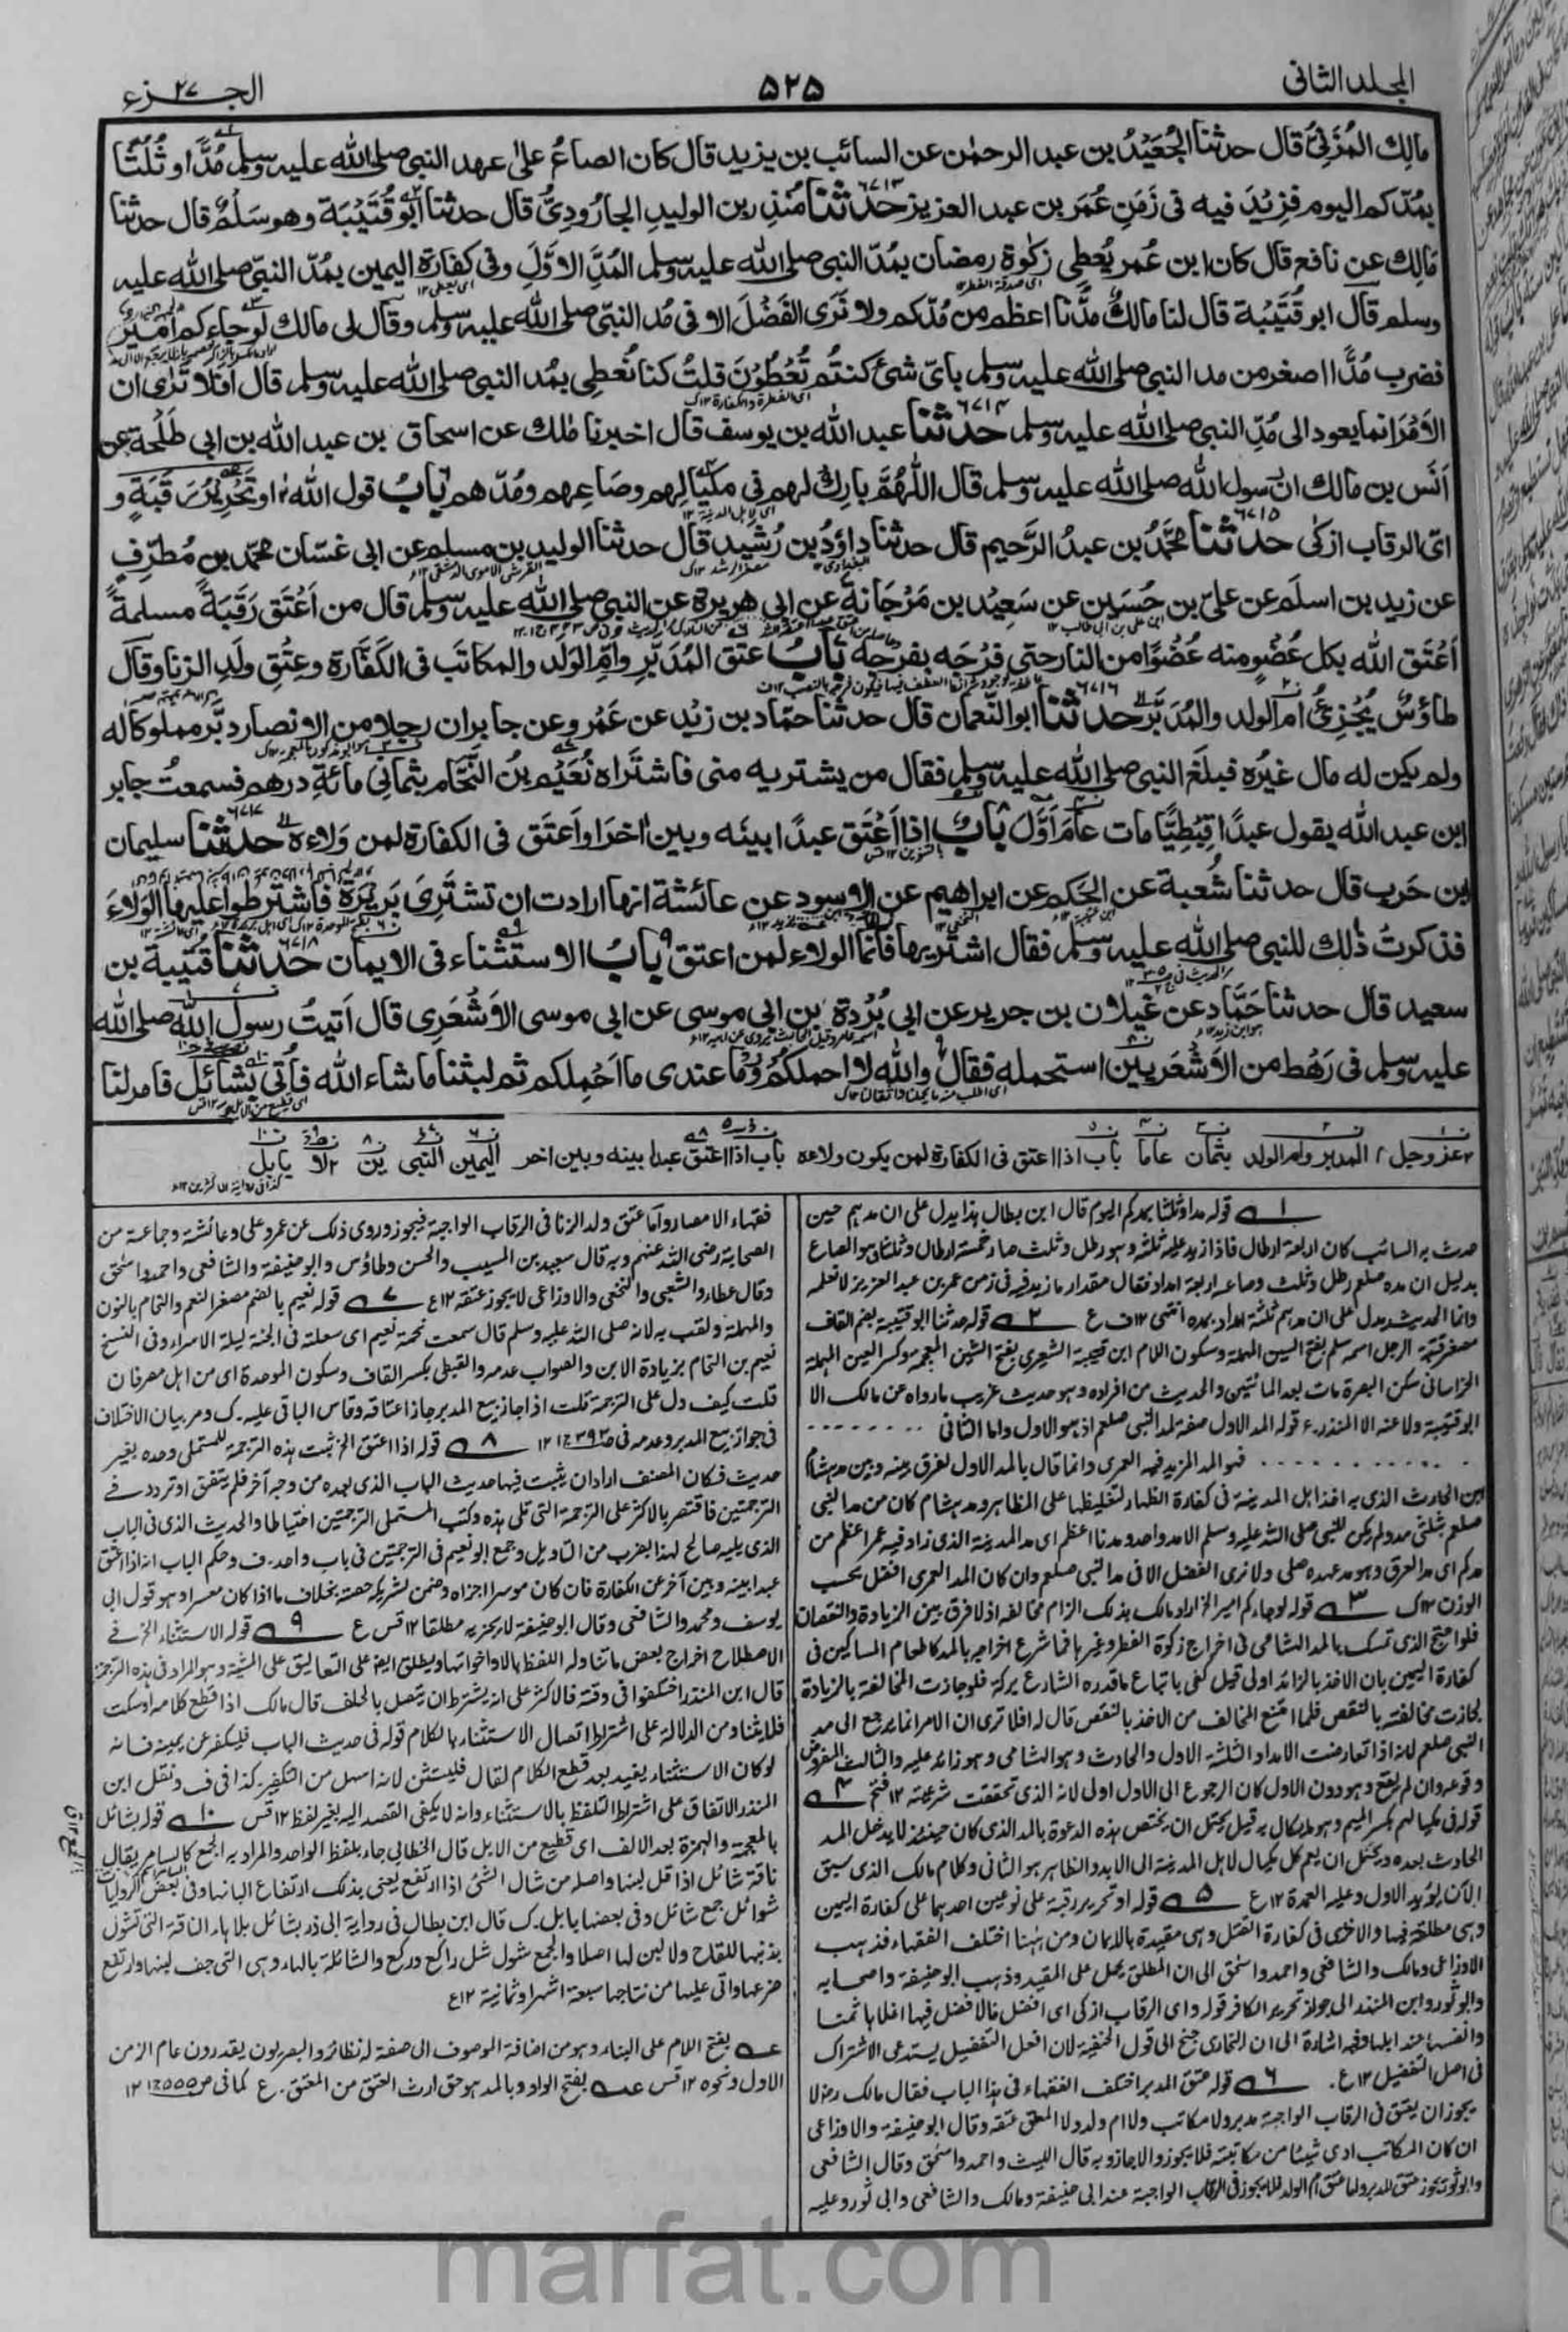 المجلد الثاني
۵۲۵
الجزء ۲۷
مالك المُزَنِيُّ قال حدثنا الجُعَيْدُ بن عبد الرحمٰن عن السائب بن يزيد قال كان الصاعُ على عهد النبي صلى الله عليه وسلم مُدًّا و ثُلُثًا
بمُدّكم اليوم فزِيْدَ فيه في زَمَنِ عُمَر بن عبد العزيز ۶۷۱۳ حدثنا مُنذِر بن الوليدِ الجارُودِيُّ قال حدثنا ابو قُتَيْبَة وهو سَلْمٌ قال حدثنا
مَالِك عن نافع قال كان ابن عُمر يُعطِي زكٰوة رمضان بمُدّ النبي صلى الله عليه وسلم المُدِّ الاوَّلِ وفي كفارة اليمين بمُدّ النبيّ صلى الله عليه
وسلم قال ابو قُتَيْبَة قال لنا مالكٌ مُدُّنا اعظم من مُدّكم ولا نَرَى الفَضْلَ الا في مُد النبيّ صلى الله عليه وسلم وقال لي مالك لو جاءكم اميرٌ
فضرب مُدًّا اصغر من مد النبي صلى الله عليه وسلم بايّ شئ كنتُم تُعْطُوْنَ قلتُ كنا نُعْطِي بمُد النبي صلى الله عليه وسلم قال افلا تَرٰى ان
الاَمْرَ انما يعود الى مُدِّ النبي صلى الله عليه وسلم ۶۷۱۴ حدثنا عبد الله بن يوسف قال اخبرنا مٰلك عن اسحاق بن عبد الله بن ابي طَلْحة عن
اَنَس بن مالك ان رسول الله صلى الله عليه وسلم قال اللّٰهُمَّ بارِك لهم في مِكْيَالِهم وصَاعِهم ومُدّهم بابُ قول الله او تَحْرِيْرُ رَقَبَةٍ و
اىّ الرقاب ازكى ۶۷۱۵ حدثنا محمَّدُ بن عبدُ الرَّحيم قال حدثنا داؤدُ بن رُشَيد قال حدثنا الوليد بن مسلم عن ابي غسّان محمّد بن مُطَرِّفٍ
عن زيد بن اسلَم عن عليّ بن حُسَين عن سَعِيْد بن مَرْجَانةَ عن ابي هريرة عن النبي صلى الله عليه وسلم قال من اَعْتَق رَقَبَةً مسلمةً
اَعْتَق الله بكل عُضْوٍ منه عُضْوًا من النار حتى فَرْجَه بفرجه بابُ عتق المُدَبَّرِ وامّ الوَلَد والمكاتَب في الكَفَّارة وعِتْقِ ولَدِ الزنا وقال
طاؤسٌ يُجْزِئُ ام الولد والمُدَبَّر ۶۷۱۶ حدثنا ابو النُّعمان قال حدثنا حمّاد بن زَيْد عن عَمْرو عن جابر ان رجلا من الانصار دبَّر مملوكا له
ولم يكن له مال غيْرُه فبلَغ النبي صلى الله عليه وسلم فقال من يشتريه منى فاشتَراه نُعَيْمُ بنُ النَّحَّام بثماني مائةِ درهم فسمعتُ جابر
ابن عبد الله يقول عبدًا قِبْطِيًّا مات عامَ اَوَّلَ بابٌ اذا اَعْتَق عبدًا بينَه وبين اٰخرَ او اَعتَق في الكفارة لمن وَلاءه ۶۷۱۷ حدثنا سليمان
ابن حَرب قال حدثنا شُعبة عن الحَكم عن ابراهيم عن الاسود عن عائشة انها ارادت ان تَشتَرِىَ بَرِيْرَةَ فاشترطوا عليها الوَلاءَ
فذكرتُ ذٰلك للنبي صلى الله عليه وسلم فقال اشتَريها فانما الولاء لمن اعتق بابُ الاستثناء في الايمان ۶۷۱۸ حدثنا قُتَيبة بن
سعيد قال حدثنا حَمَّاد عن غَيلان بن جرير عن ابي بُرْدة بن ابي موسى عن ابي موسى الاَشْعَرِي قال اَتيتُ رسول الله صلى الله
عليه وسلم في رَهْط من الاَشْعَريين استحمله فقال والله لا احملكم وما عندى ما اَحْمِلكم ثم لبثنا ما شاء الله فاُتِىَ بشائل فامر لنا
عز وجل المدبر وام الولد بثمان عاما باب اذا اعتق في الكفارة لمن يكون ولاءه باب اذا اعتق عبدا بينه وبين اخر اليمين النبي ين لا بابل
قوله مدا وثلثا بمدكم اليوم قال ابن بطال هذا يدل على ان مدهم حين
حدث به السائب كان اربعة ارطال فاذا زيد عليه ثلثه وهو رطل وثلث صار خمسة ارطال وثلثا وهو الصاع
بدليل ان مده صلعم رطل وثلث وصاعه اربعة امداد فقال مقدار ما زيد فيه في زمن عمر بن عبد العزيز لا نعلمه
وانما الحديث يدل على ان مدهم ثلثة امداد بمده انتهى ۱۲ ف ع ۲ قوله حدثنا ابو قتيبة بضم القاف
مصغر قتبة الرجل اسمه سلم بفتح السين المهملة وسكون اللام ابن قتيبة الشعيري بفتح الشين المعجمة وكسر العين المهملة
الخراساني سكن البصرة مات بعد المائتين والحديث من افراده وهو حديث غريب ما رواه عن مالك الا
ابو قتيبة ولا عنه الا المنذر ع قوله المد الاول صفة لمد النبي صلعم اذ هو الاول واما الثاني
فهو المد المزيد فيه العمري وانما قال بالمد الاول ليفرق بينه وبين مد هشام
ابن الحارث الذي به اخذ اهل المدينة في كفارة الظهار لتغليظها على المظاهر ومد هشام كان من مد النبي
صلعم بثلثي مد ولم يكن للنبي صلى الله عليه وسلم الا مد واحد ومدنا اعظم اي مد المدينة الذي زاد فيه عمر اعظم من
مدكم اي مد العراق وهو مد عهده صلى ولا نرى الفضل الا في مد النبي صلعم وان كان المد العمري افضل بحسب
الوزن ۱۲ ك ۳ قوله لو جاءكم امير الخ اراد مالك بذلك الزام مخالفه اذ لا فرق بين الزيادة والنقصان
فلو احتج الذي تمسك بالمد الشامي في اخراج زكوة الفطر وغيرها فما شرع اخراجه بالمد كاطعام المساكين في
كفارة اليمين بان الاخذ بالزائد اولى قيل كفى باتباع ما قدره الشارع بركة فلو جازت المخالفة بالزيادة
لجازت مخالفته بالنقص فلما امتنع المخالف من الاخذ بالنقص قال له افلا ترى ان الامر انما يرجع الى مد
النبي صلعم لانه اذا تعارضت الامداد الثلثة الاول والحادث وهو الشامي وهو زائد عليه والثالث المفروض
وقوعه وان لم يقع وهو دون الاول كان الرجوع الى الاول اولى لانه الذي تحققت شرعيته ۱۲ فتح ۴
قوله في مكيالهم بكسر الميم وهو ما يكال به قيل يحتمل ان يختص هذه الدعوة بالمد الذي كان حينئذ لا يدخل المد
الحادث بعده ويحتمل ان يعم كل مكيال لاهل المدينة الى الابد والظاهر هو الثاني وكلام مالك الذي سبق
الآن يؤيد الاول وعليه العمدة ۱۲ ع ۵ قوله او تحرير رقبة على نوعين احدهما على كفارة اليمين
وهي مطلقة فيها والاخرى في كفارة القتل وهي مقيدة بالايمان ومن ههنا اختلف الفقهاء فذهب
الاوزاعي ومالك والشافعي واحمد واسحق الى ان المطلق يحمل على المقيد وذهب ابو حنيفة واصحابه
وابو ثور وابن المنذر الى جواز تحرير الكافر قوله واي الرقاب ازكى اي افضل فالافضل فيها اغلاها ثمنا
وانفسها عند اهلها وفيه اشارة الى ان البخاري جنح الى قول الحنفية لان افعل التفضيل يستدعي الاشتراك
في اصل التفضيل ۱۲ ع. ۶ قوله عتق المدبر اختلف الفقهاء في هذا الباب فقال مالك لا
يجوز ان يعتق في الرقاب الواجبة مدبر ولا مكاتب ولا ام ولد ولا المعلق عتقه وقال ابو حنيفة والاوزاعي
ان كان المكاتب ادى شيئا من مكاتبته فلا يجوز والا جاز وبه قال الليث واحمد واسحق وقال الشافعي
وابو ثور يجوز عتق المدبر واما عتق ام الولد فلا يجوز في الرقاب الواجبة عند ابي حنيفة ومالك والشافعي وابي ثور وعليه
فقهاء الامصار واما عتق ولد الزنا في الرقاب الواجبة فيجوز وروي ذلك عن عمر وعلي وعائشة وجماعة من
الصحابة رضي الله عنهم وبه قال سعيد بن المسيب والحسن وطاؤس وابو حنيفة والشافعي واحمد واسحق
وقال عطاء والشعبي والنخعي والاوزاعي لا يجوز عتقه ۱۲ ع ۷ قوله نعيم بالضم مصغر النعم والنحام بالنون
والمهملة ولقب به لانه صلى الله عليه وسلم قال سمعت نحمة نعيم اي سعلة في الجنة ليلة الاسراء وفي النسخ
نعيم بن النحام بزيادة الابن والصواب عدمه والقبطي بكسر القاف وسكون الموحدة اي من اهل مصر فان
قلت كيف دل على الترجمة قلت اذا جاز بيع المدبر جاز اعتاقه وقاس الباقي عليه. ك ومر بيان الاختلاف
في جواز بيع المدبر وعدمه في ۱۲ ۸ قوله اذا اعتق الخ ثبت هذه الترجمة للمستملي وحده بغير
حديث فكان المصنف اراد ان يثبت فيها حديث الباب الذي بعده من وجه آخر فلم يتفق او تردد في
الترجمتين فاقتصر بالاكثر على الترجمة التي تلي هذه وكتب المستملي الترجمتين احتياطا والحديث الذي في الباب
الذي يليه صالح لهذا بضرب من التاويل وجمع ابو نعيم في الترجمتين في باب واحد. ف وحكم الباب انه اذا اعتق
عبدا بينه وبين آخر عن الكفارة فان كان موسرا اجزاه وضمن لشريكه حصته بخلاف ما اذا كان معسرا وهو قول ابي
يوسف ومحمد والشافعي وقال ابو حنيفة لا يجزيه مطلقا ۱۲ قس ع ۹ قوله الاستثناء الخ في
الاصطلاح اخراج بعض ما تناوله اللفظ بالا واخواتها ويطلق ايضا على التعاليق على المشية وهو المراد في هذه الترجمة
قال ابن المنذر اختلفوا في وقته فالاكثر على انه يشترط ان يتصل بالحلف قال مالك اذا قطع كلامه او سكت
فلا ثنيا ومن الدلالة على اشتراط اتصال الاستثناء بالكلام قوله في حديث الباب فليكفر عن يمينه فانه
لو كان الاستثناء يفيد بعد قطع الكلام لقال فليستثن لانه اسهل من التكفير. كذا في ف ونقل ابن
المنذر الاتفاق على اشتراط التلفظ بالاستثناء وانه لا يكفي القصد اليه بغير لفظ ۱۲ قس ۱۰ قوله بشائل
بالمعجمة والهمزة بعد الالف اي قطيع من الابل قال الخطابي جاء بلفظ الواحد والمراد به الجمع كالسامر يقال
ناقة شائل اذا قل لبنها واصله من شال الشئ اذا ارتفع يعني بذلك ارتفاع البانها وفي بعض الروايات
شوائل جمع شائل وفي بعضها بابل. ك قال ابن بطال في رواية ابي ذر بشائل بلا هاء الناقة التي تشول
بذنبها للقاح ولا لبن لها اصلا والجمع شول مثل راكع وركع والشائلة بالهاء وهي التي جف لبنها وارتفع
ضرعها واتى عليها من نتاجها سبعة اشهر او ثمانية ۱۲ ع
عه بفتح اللام على البناء وهو من اضافة الموصوف الى صفة له نظائر والبصريون يقدرون عام الزمن
الاول ونحوه ۱۲ قس عه بفتح الواو وبالمد هو حق ارث العتق من المعتق. ع كما في ص ۵۵۵ ج ۱ ۱۲
marfat.com